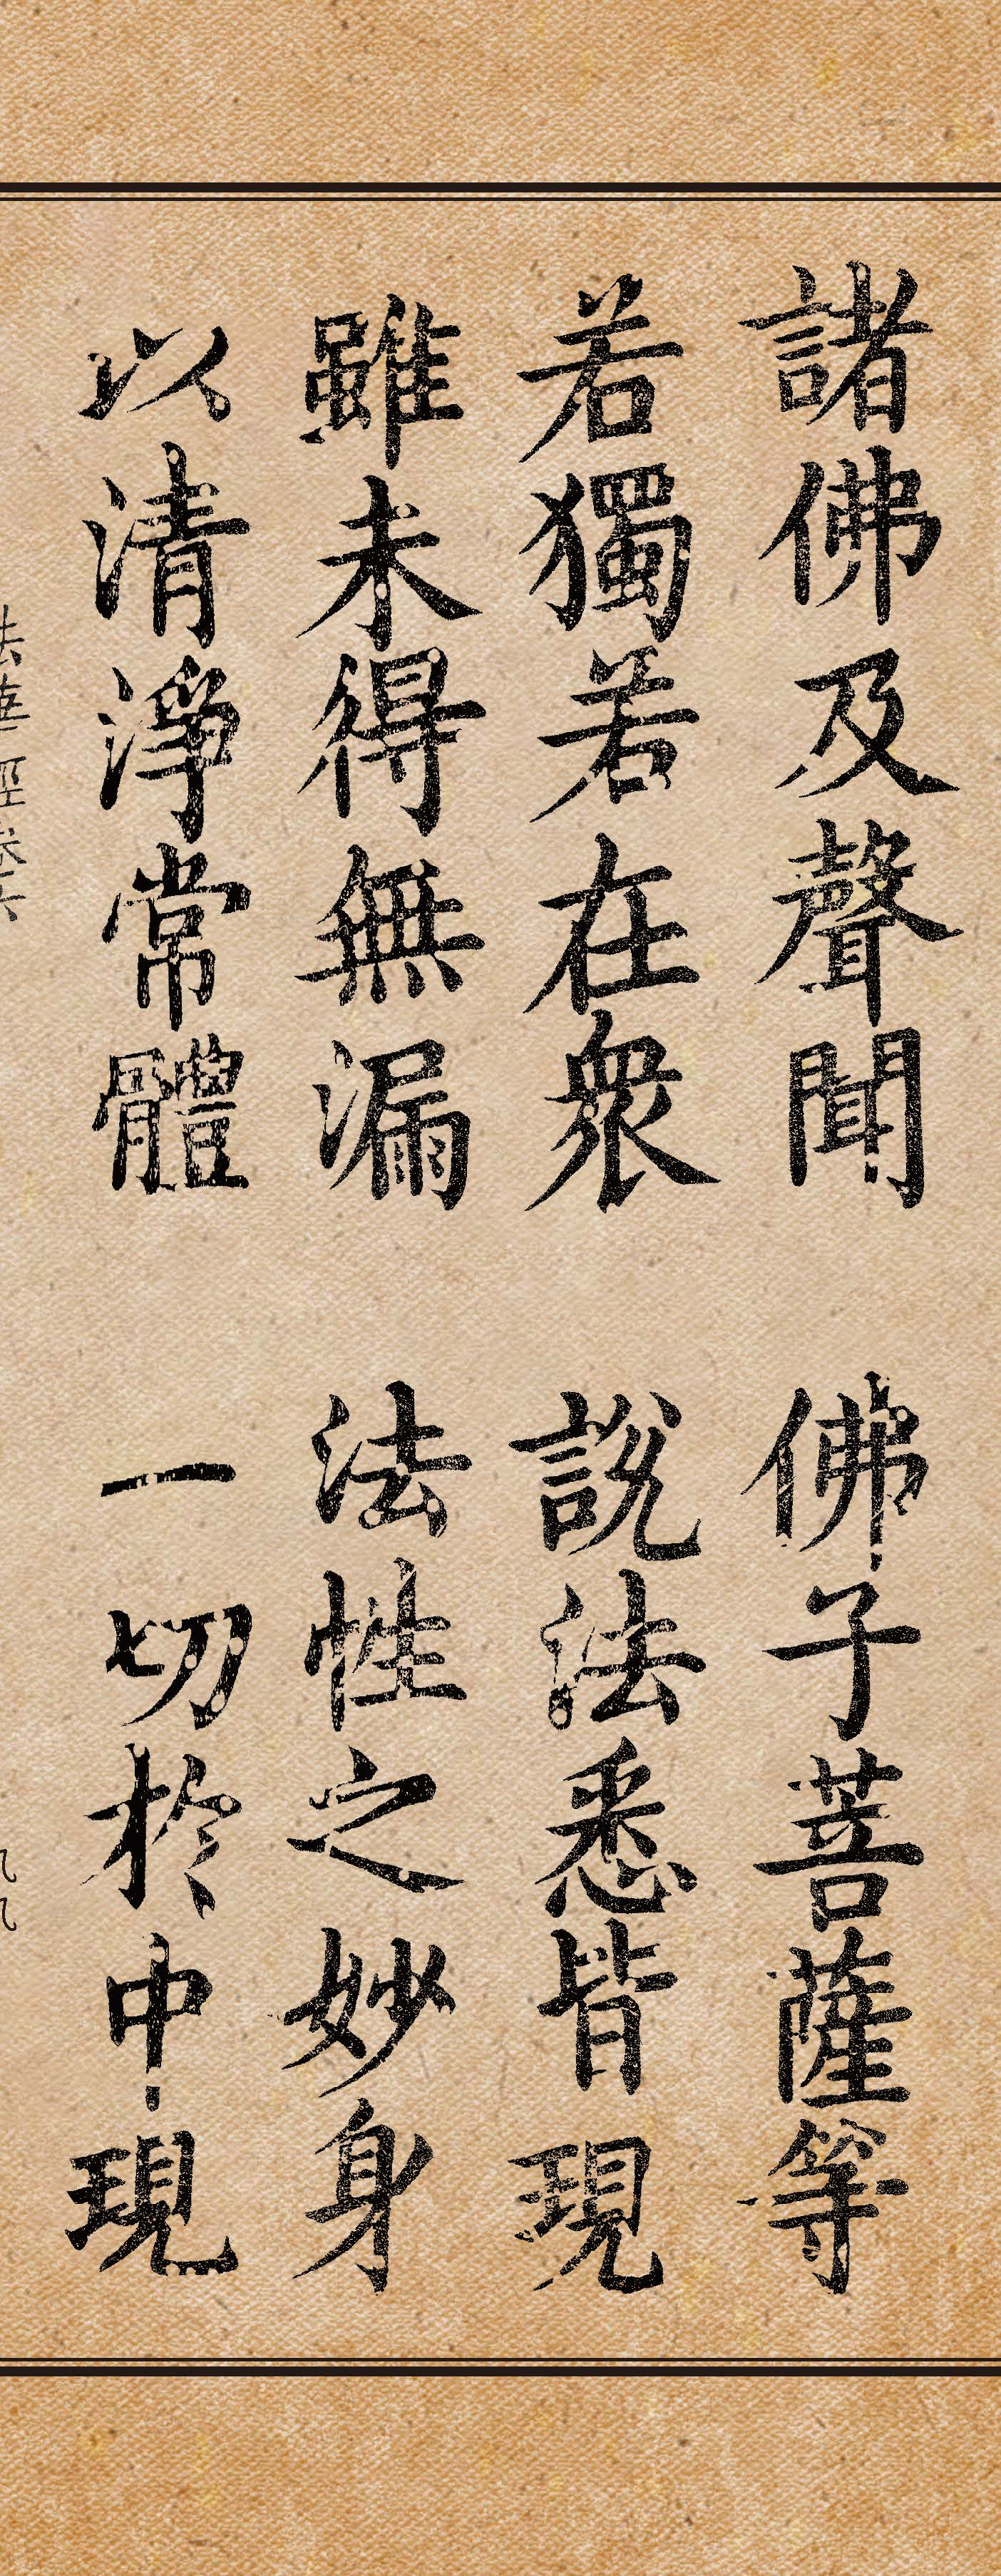 諸佛及聲聞　佛子菩薩等
若獨若在衆　說法悉皆現
雖未得無漏　法性之妙身
以清淨常體　一切於中現
法華經卷六
九九